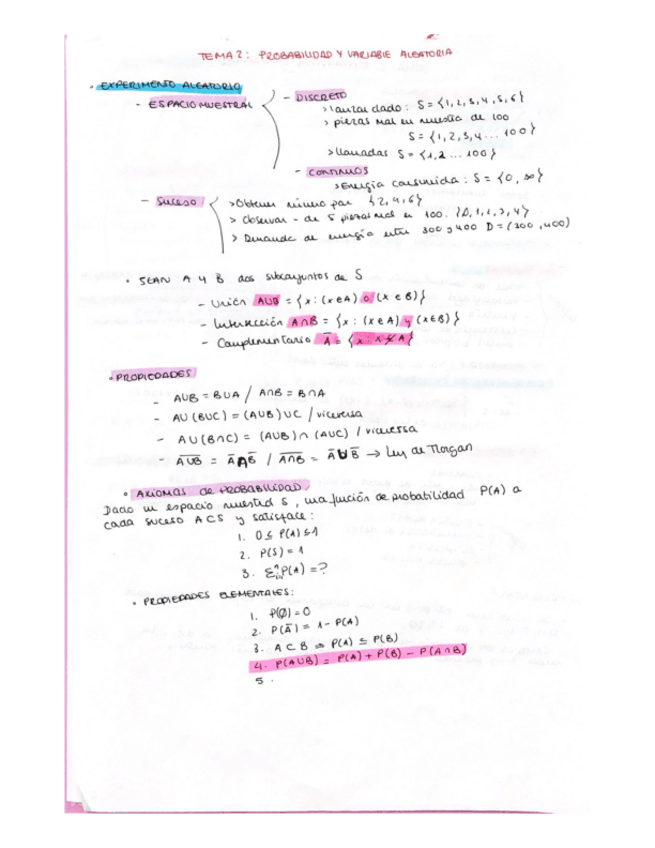 TEMA 2: PROBABILIDAD Y VARIABLE ALEATORIA
• EXPERIMENTO ALEATORIO
- ESPACIO MUESTRAL
- DISCRETO
> Lanzar dado: S = {1, 2, 3, 4, 5, 6}
> piezas mal en muestra de 100
S = {1, 2, 3, 4 ... 100}
> llamadas S = {1, 2 ... 100}
- CONTINUOS
> Energía consumida: S = {0, ∞}
- Suceso
> Obtener número par {2, 4, 6}
> Observar - de 5 piezas mal en 100. {0, 1, 2, 3, 4}
> Demanda de energía entre 300 y 400 D = (300, 400)
• SEAN A y B dos subconjuntos de S
- Unión AUB = {x: (x∈A) o (x∈B)}
- Intersección A∩B = {x: (x∈A) y (x∈B)}
- Complementario A̅ = {x: x∉A}
• PROPIEDADES
- AUB = BUA / A∩B = B∩A
- AU(BUC) = (AUB)UC / viceversa
- AU(B∩C) = (AUB)∩(AUC) / viceversa
- A̅U̅B̅ = A̅∩B̅ / A̅∩̅B̅ = A̅UB̅ → Ley de Morgan
• AXIOMAS de PROBABILIDAD.
Dado un espacio muestral S, una función de probabilidad P(A) a
cada suceso A⊂S y satisface:
1. 0≤P(A)≤1
2. P(S) = 1
3. Σⁿᵢ₌₁P(A) = ?
• PROPIEDADES ELEMENTALES:
1. P(∅) = 0
2. P(A̅) = 1 - P(A)
3. A⊂B ⇒ P(A) ≤ P(B)
4. P(AUB) = P(A) + P(B) - P(A∩B)
5.